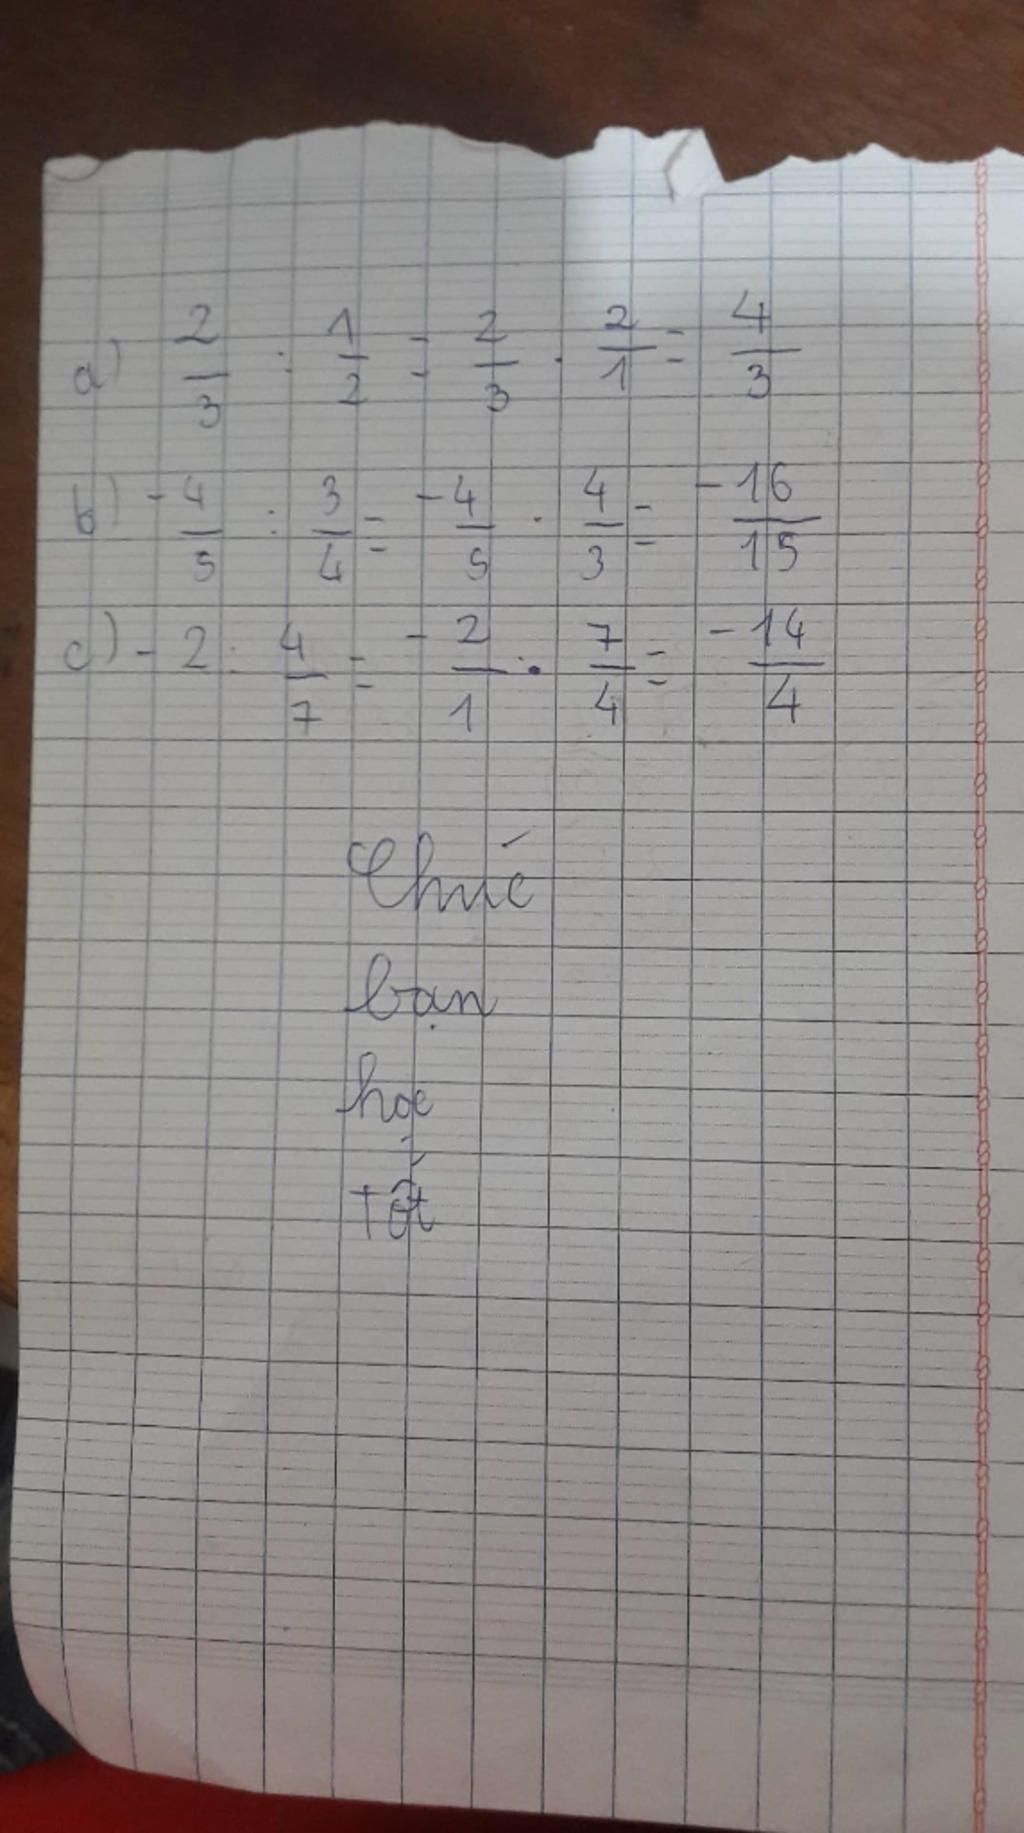 a) 2/3 : 1/2 = 2/3 . 2/1 = 4/3
b) -4/5 : 3/4 = -4/5 . 4/3 = -16/15
c) -2 : 4/7 = -2/1 . 7/4 = -14/4
Chúc
bạn
học
tốt